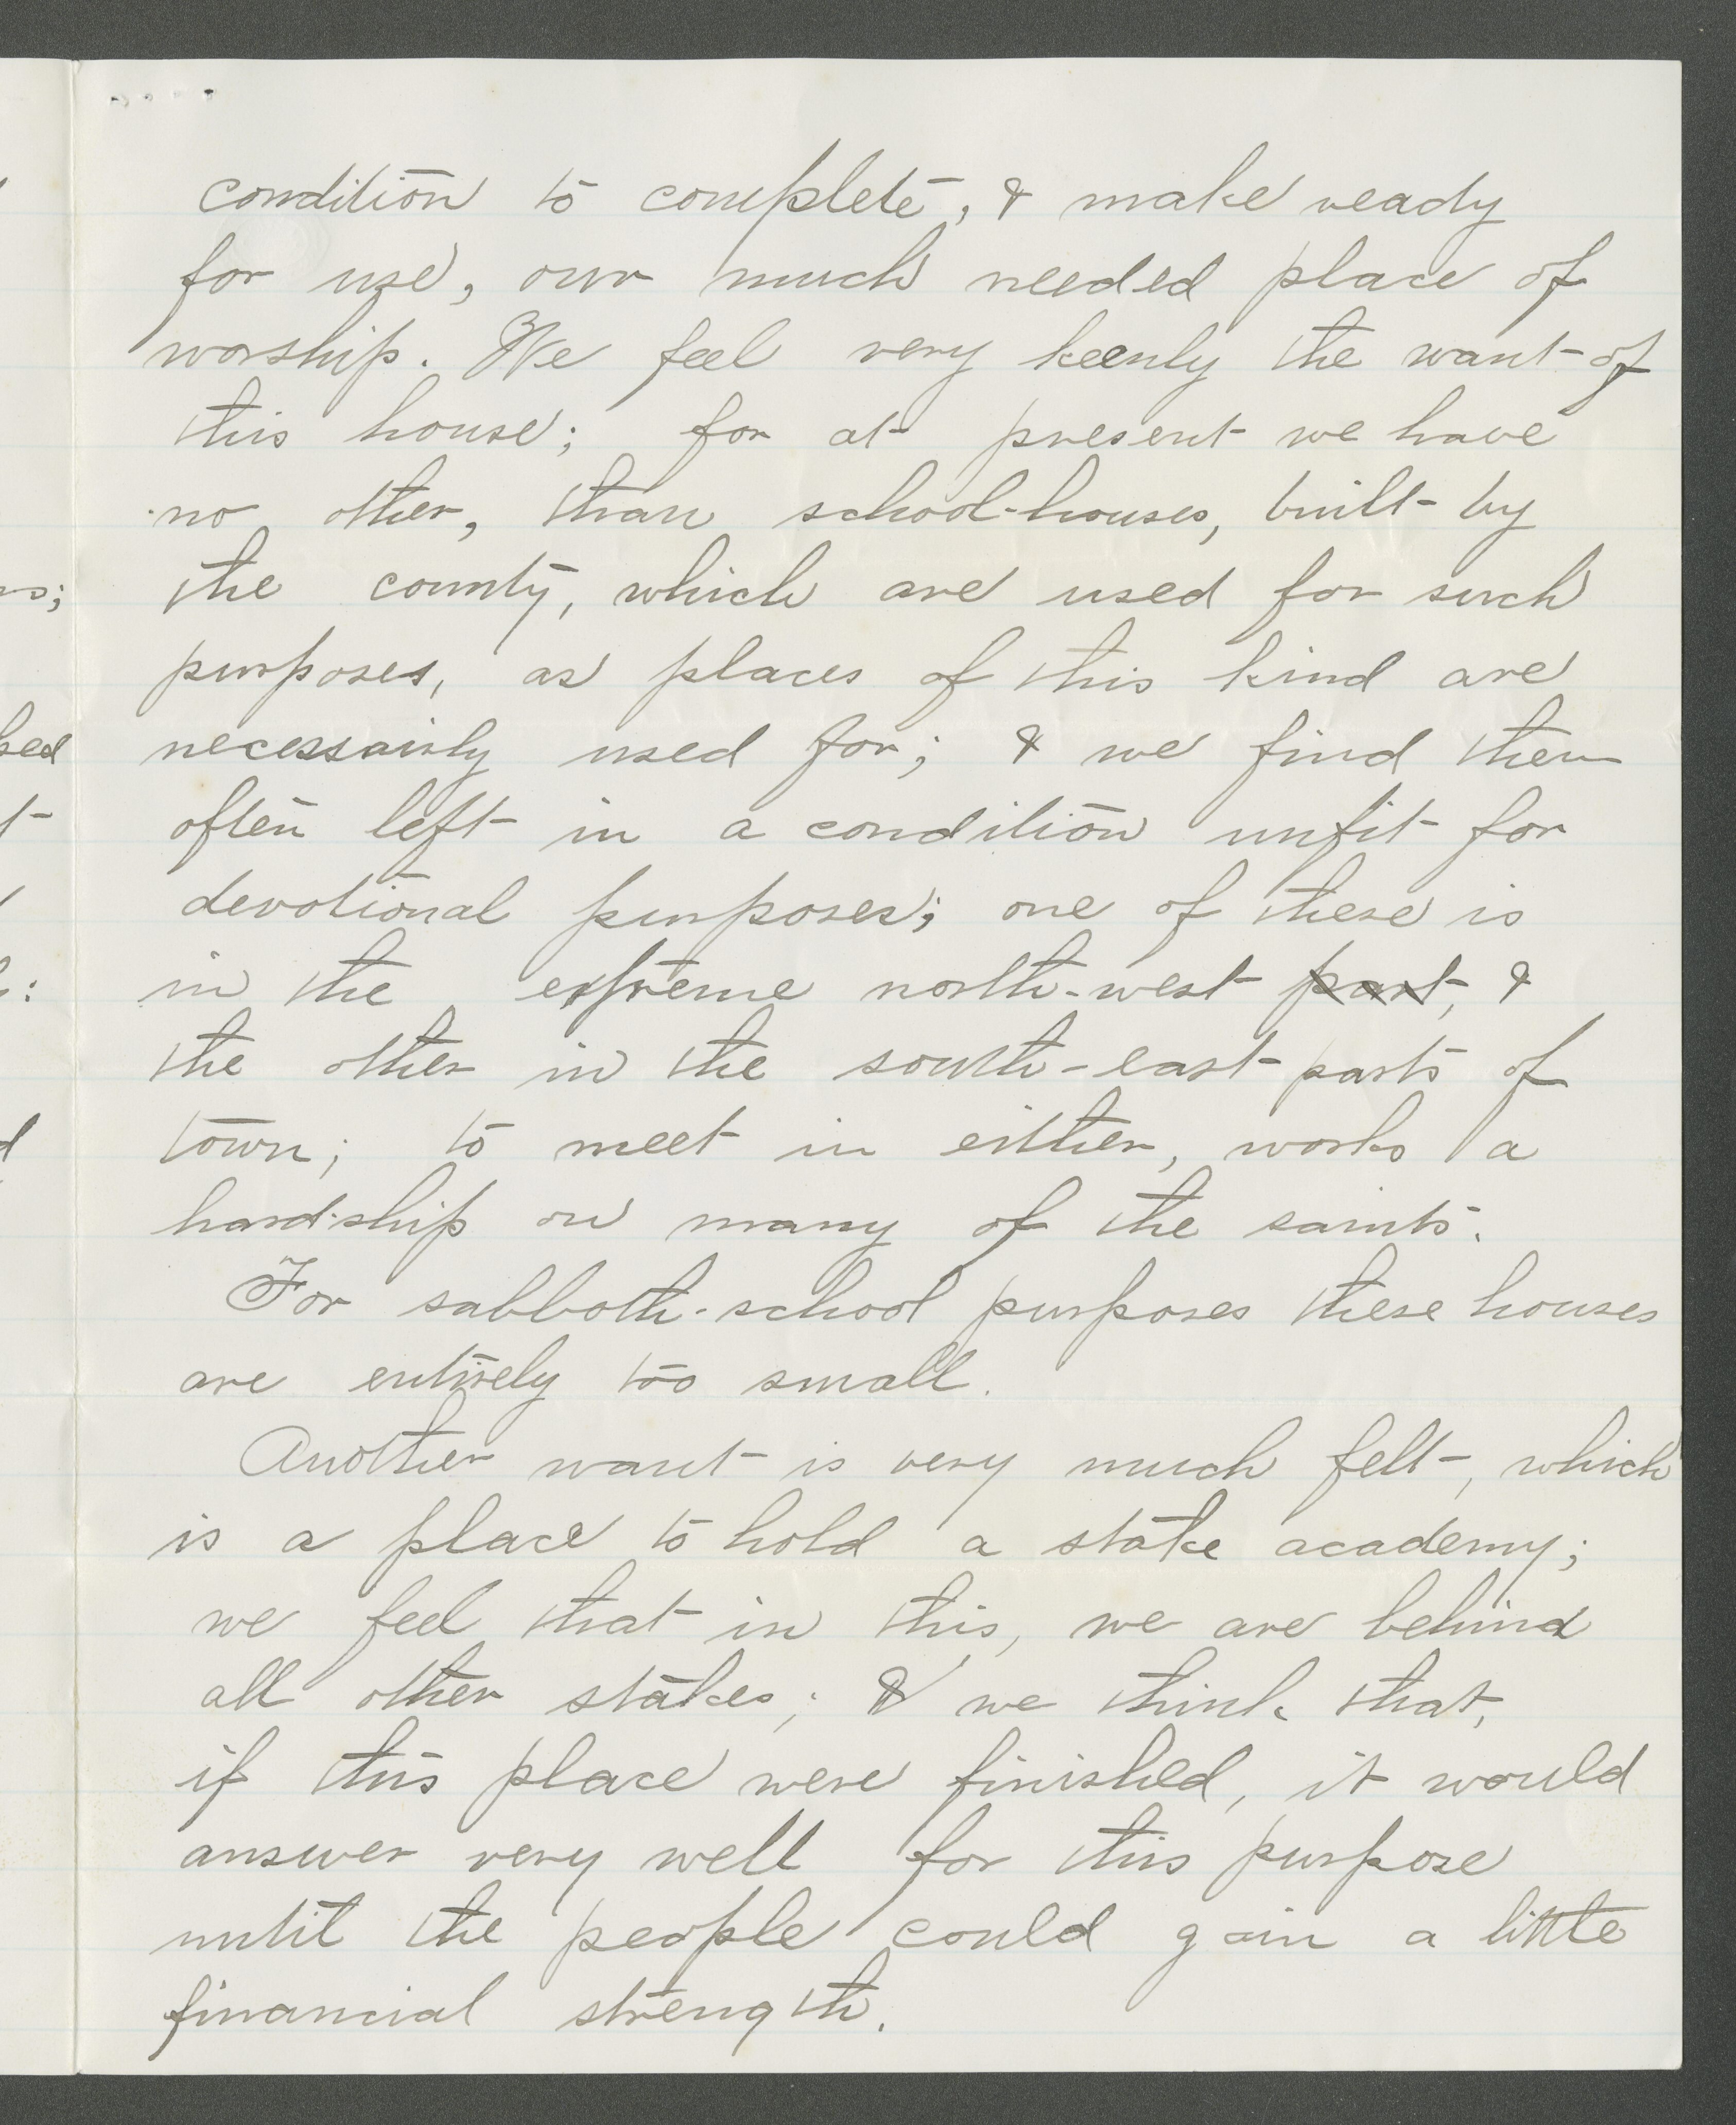 condition to complete, & make ready
for use, our much needed place of
worship. We feel very keenly the want of
this house; for at present we have
no other, than school-houses, built by
the county, which are used for such
purposes, as places of this kind are
necessairly used for; & we find them
often left in a condition unfit for
devotional purposes; one of these is
in the extreme north-west part, &
the other in the south-east parts of
town; to meet in either, works a
hard-ship on many of the saints.
For sabboth-school purposes these houses
are entirely too small.
Another want is very much felt, which
is a place to hold a stake academy;
we feel that in this, we are behind
all other stakes; & we think that,
if this place were finished, it would
answer very well for this purpose
until the people could gain a little
financial strength.